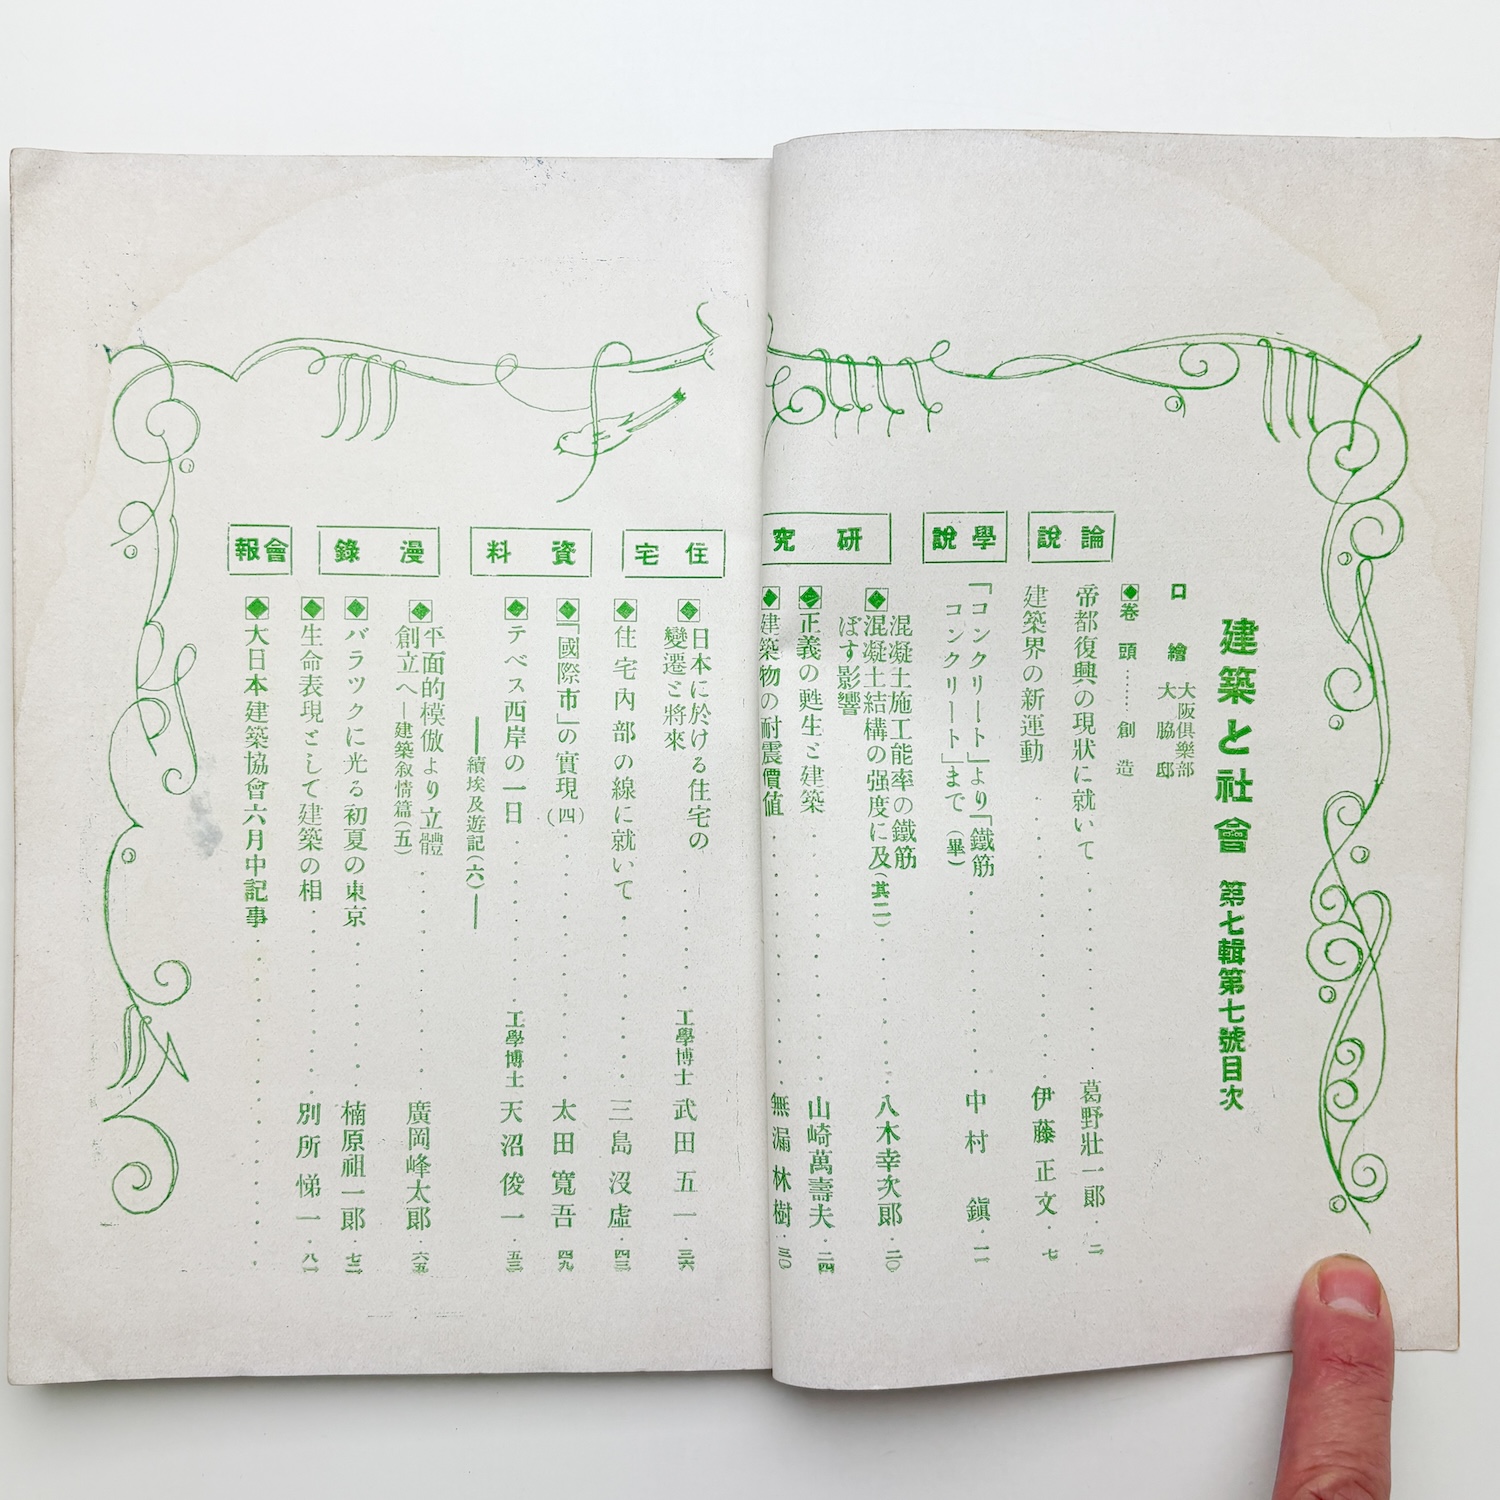 建築と社會 第七輯第七號目次
口繪 大阪俱樂部
大脇邸
卷頭……創造
論說
帝都復興の現狀に就いて 葛野壯一郎 二
建築界の新運動 伊藤正文 七
學說
「コンクリート」より「鐵筋
コンクリート」まで(畢) 中村鎭 一一
研究
混凝土施工能率の鐵筋
混凝土結構の强度に及
ぼす影響(其二) 八木幸次郞 二〇
正義の甦生と建築 山崎萬壽夫 二四
建築物の耐震價値 無漏林樹 三〇
住宅
日本に於ける住宅の
變遷と將來 工學博士 武田五一 三六
住宅內部の線に就いて 三島沒虛 四三
資料
「國際市」の實現(四) 太田寬吾 四九
テベス西岸の一日 工學博士 天沼俊一 五三
――續埃及遊記(六)――
漫錄
平面的模倣より立體
創立へ―建築敍情篇(五) 廣岡峰太郞 六五
バラツクに光る初夏の東京 楠原祖一郞 七二
生命表現として建築の相 別所悌一 八一
會報
大日本建築協會六月中記事